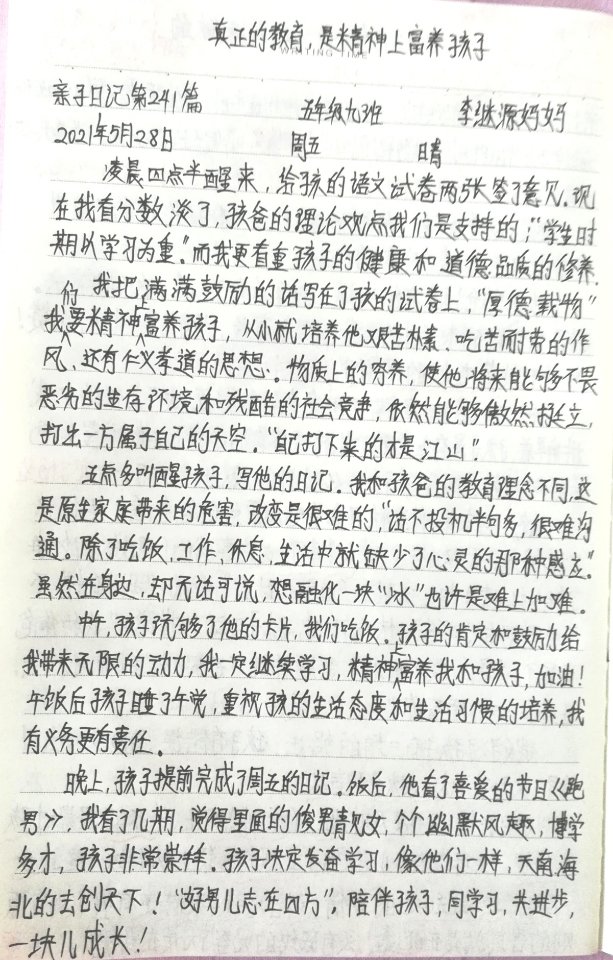 真正的教育,是精神上富养孩子
亲子日记第241篇 五年级九班 李继源妈妈
2021年5月28日 周五 晴
凌晨四点半醒来,给孩的语文试卷两张签了意见。现
在我看分数淡了,孩爸的理论观点我们是支持的;“学生时
期以学习为重。”而我更看重孩子的健康和道德品质的修养。
我把满满鼓励的话写在了孩的试卷上,“厚德载物”
我们要精神上富养孩子,从小就培养他艰苦朴素、吃苦耐劳的作
风、还有仁义孝道的思想。物质上的穷养,使他将来能够不畏
恶劣的生存环境和残酷的社会竞争,依然能够傲然挺立,
打出一方属于自己的天空。“自己打下来的才是江山”
五点多叫醒孩子,写他的日记。我和孩爸的教育理念不同,这
是原生家庭带来的危害,改变是很难的,“话不投机半句多,很难沟
通。除了吃饭、工作、休息,生活中就缺少了心灵的那种感应。”
虽然在身边,却无话可说,想融化一块“冰”也许是难上加难。
中午,孩子玩够了他的卡片,我们吃饭。孩子的肯定和鼓励给
我带来无限的动力,我一定继续学习,精神上富养我和孩子,加油!
午饭后孩子睡了午觉,重视孩的生活态度和生活习惯的培养,我
有义务更有责任。
晚上,孩子提前完成了周五的日记。饭后,他看了喜爱的节目《跑
男》,我看了几期,觉得里面的俊男靓女,个个幽默风趣,博学
多才,孩子非常崇拜。孩子决定发奋学习,像他们一样,天南海
北的去创天下!“好男儿志在四方”。陪伴孩子,同学习,共进步,
一块儿成长!